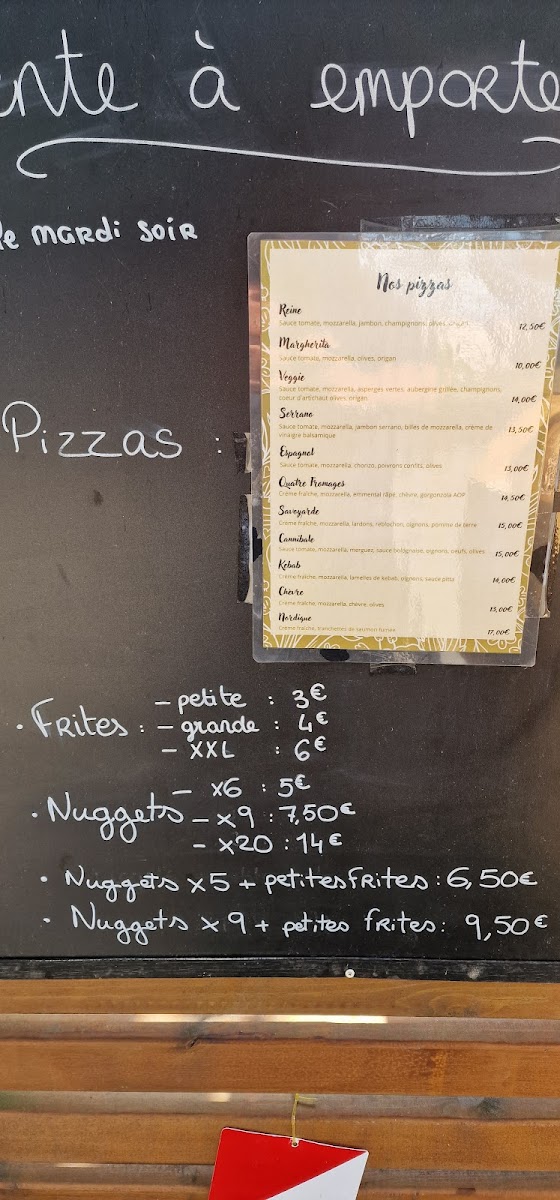 ente à emporte
le mardi soir
Pizzas :
Nos pizzas
Reine
Sauce tomate, mozzarella, jambon, champignons, olives, origan
12,50€
Margherita
Sauce tomate, mozzarella, olives, origan
10,00€
Veggie
Sauce tomate, mozzarella, asperges vertes, aubergine grillée, champignons,
coeur d'artichaut olives, origan
14,00€
Serrano
Sauce tomate, mozzarella, jambon serrano, billes de mozzarella, crème de
vinaigre balsamique
13,50€
Espagnol
Sauce tomate, mozzarella, chorizo, poivrons confits, olives
13,00€
Quatre Fromages
Crème fraîche, mozzarella, emmental râpé, chèvre, gorgonzola AOP
14,50€
Savoyarde
Crème fraîche, mozzarella, lardons, reblochon, oignons, pomme de terre
15,00€
Cannibale
Sauce tomate, mozzarella, merguez, sauce bolognaise, oignons, oeufs, olives
15,00€
Kebab
Crème fraîche, mozzarella, lamelles de kebab, oignons, sauce pitta
14,00€
Chèvre
Crème fraîche, mozzarella, chèvre, olives
13,00€
Nordique
Crème fraîche, tranchettes de saumon fumée
17,00€
· Frites : - petite : 3€
- grande : 4€
- XXL : 6€
- x6 : 5€
· Nuggets - x9 : 7,50€
- x20 : 14€
· Nuggets x5 + petites frites : 6,50€
· Nuggets x9 + petites frites : 9,50€